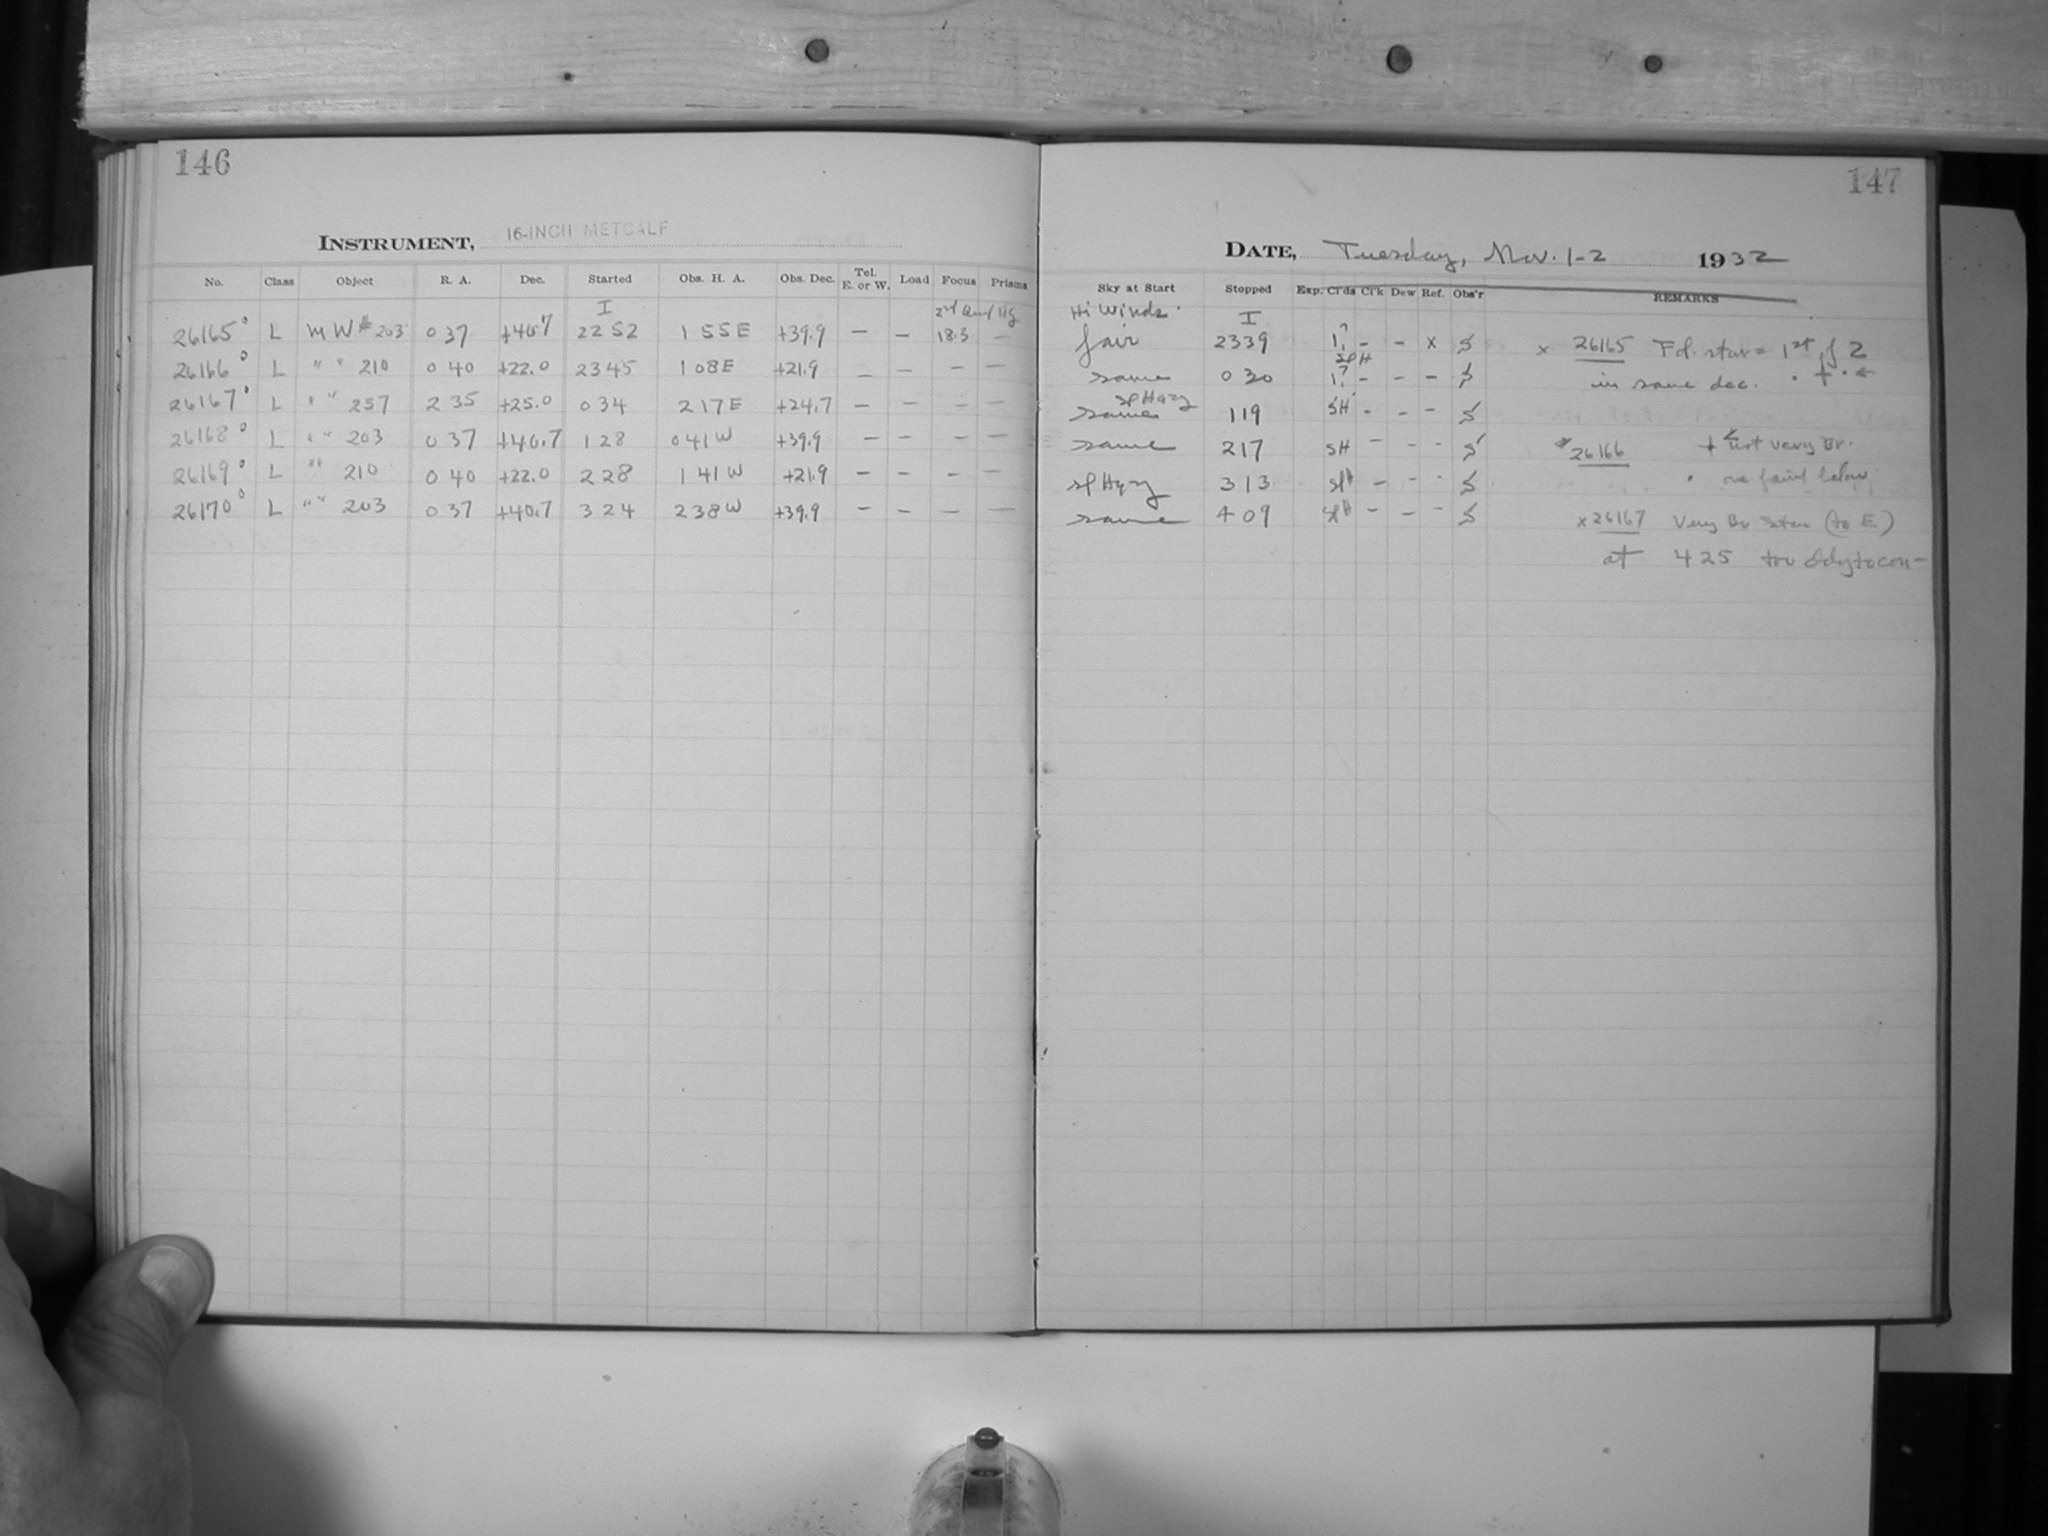 146
INSTRUMENT, 16-INCH METCALF
No. Class Object R. A. Dec. Started Obs. H. A. Obs. Dec. Tel. E. or W. Load Focus Prisms
I
26165° L MW # 203 0 37 +40.7 22 52 1 55 E +39.9 — — 18.3 —
26166° L " " 210 0 40 +22.0 23 45 1 08 E +21.9 — — — —
26167° L " " 257 2 35 +25.0 0 34 2 17 E +24.7 — — — —
26168° L " " 203 0 37 +40.7 1 28 0 41 W +39.9 — — — —
26169° L " " 210 0 40 +22.0 2 28 1 41 W +21.9 — — — —
26170° L " " 203 0 37 +40.7 3 24 2 38 W +39.9 — — — —
147
DATE, Tuesday, Nov. 1-2 1932
Sky at Start Stopped Exp. Cl'ds Cl'k Dew Ref. Obs'r REMARKS
Hi Winds. I
fair 23 39 1? - - x S x 26165 Fd. star = 1st of 2
Sl H
same 0 30 1? - - - S in same dec. . + . ←
Sl Hazy
same 1 19 SH - - - S
same 2 17 SH - - - S * 26166 + not very Br.
Sl Hazy 3 13 SlH - - - S . one faint below.
same 4 09 SlH - - - S x 26167 Very Br star (to E)
at 4 25